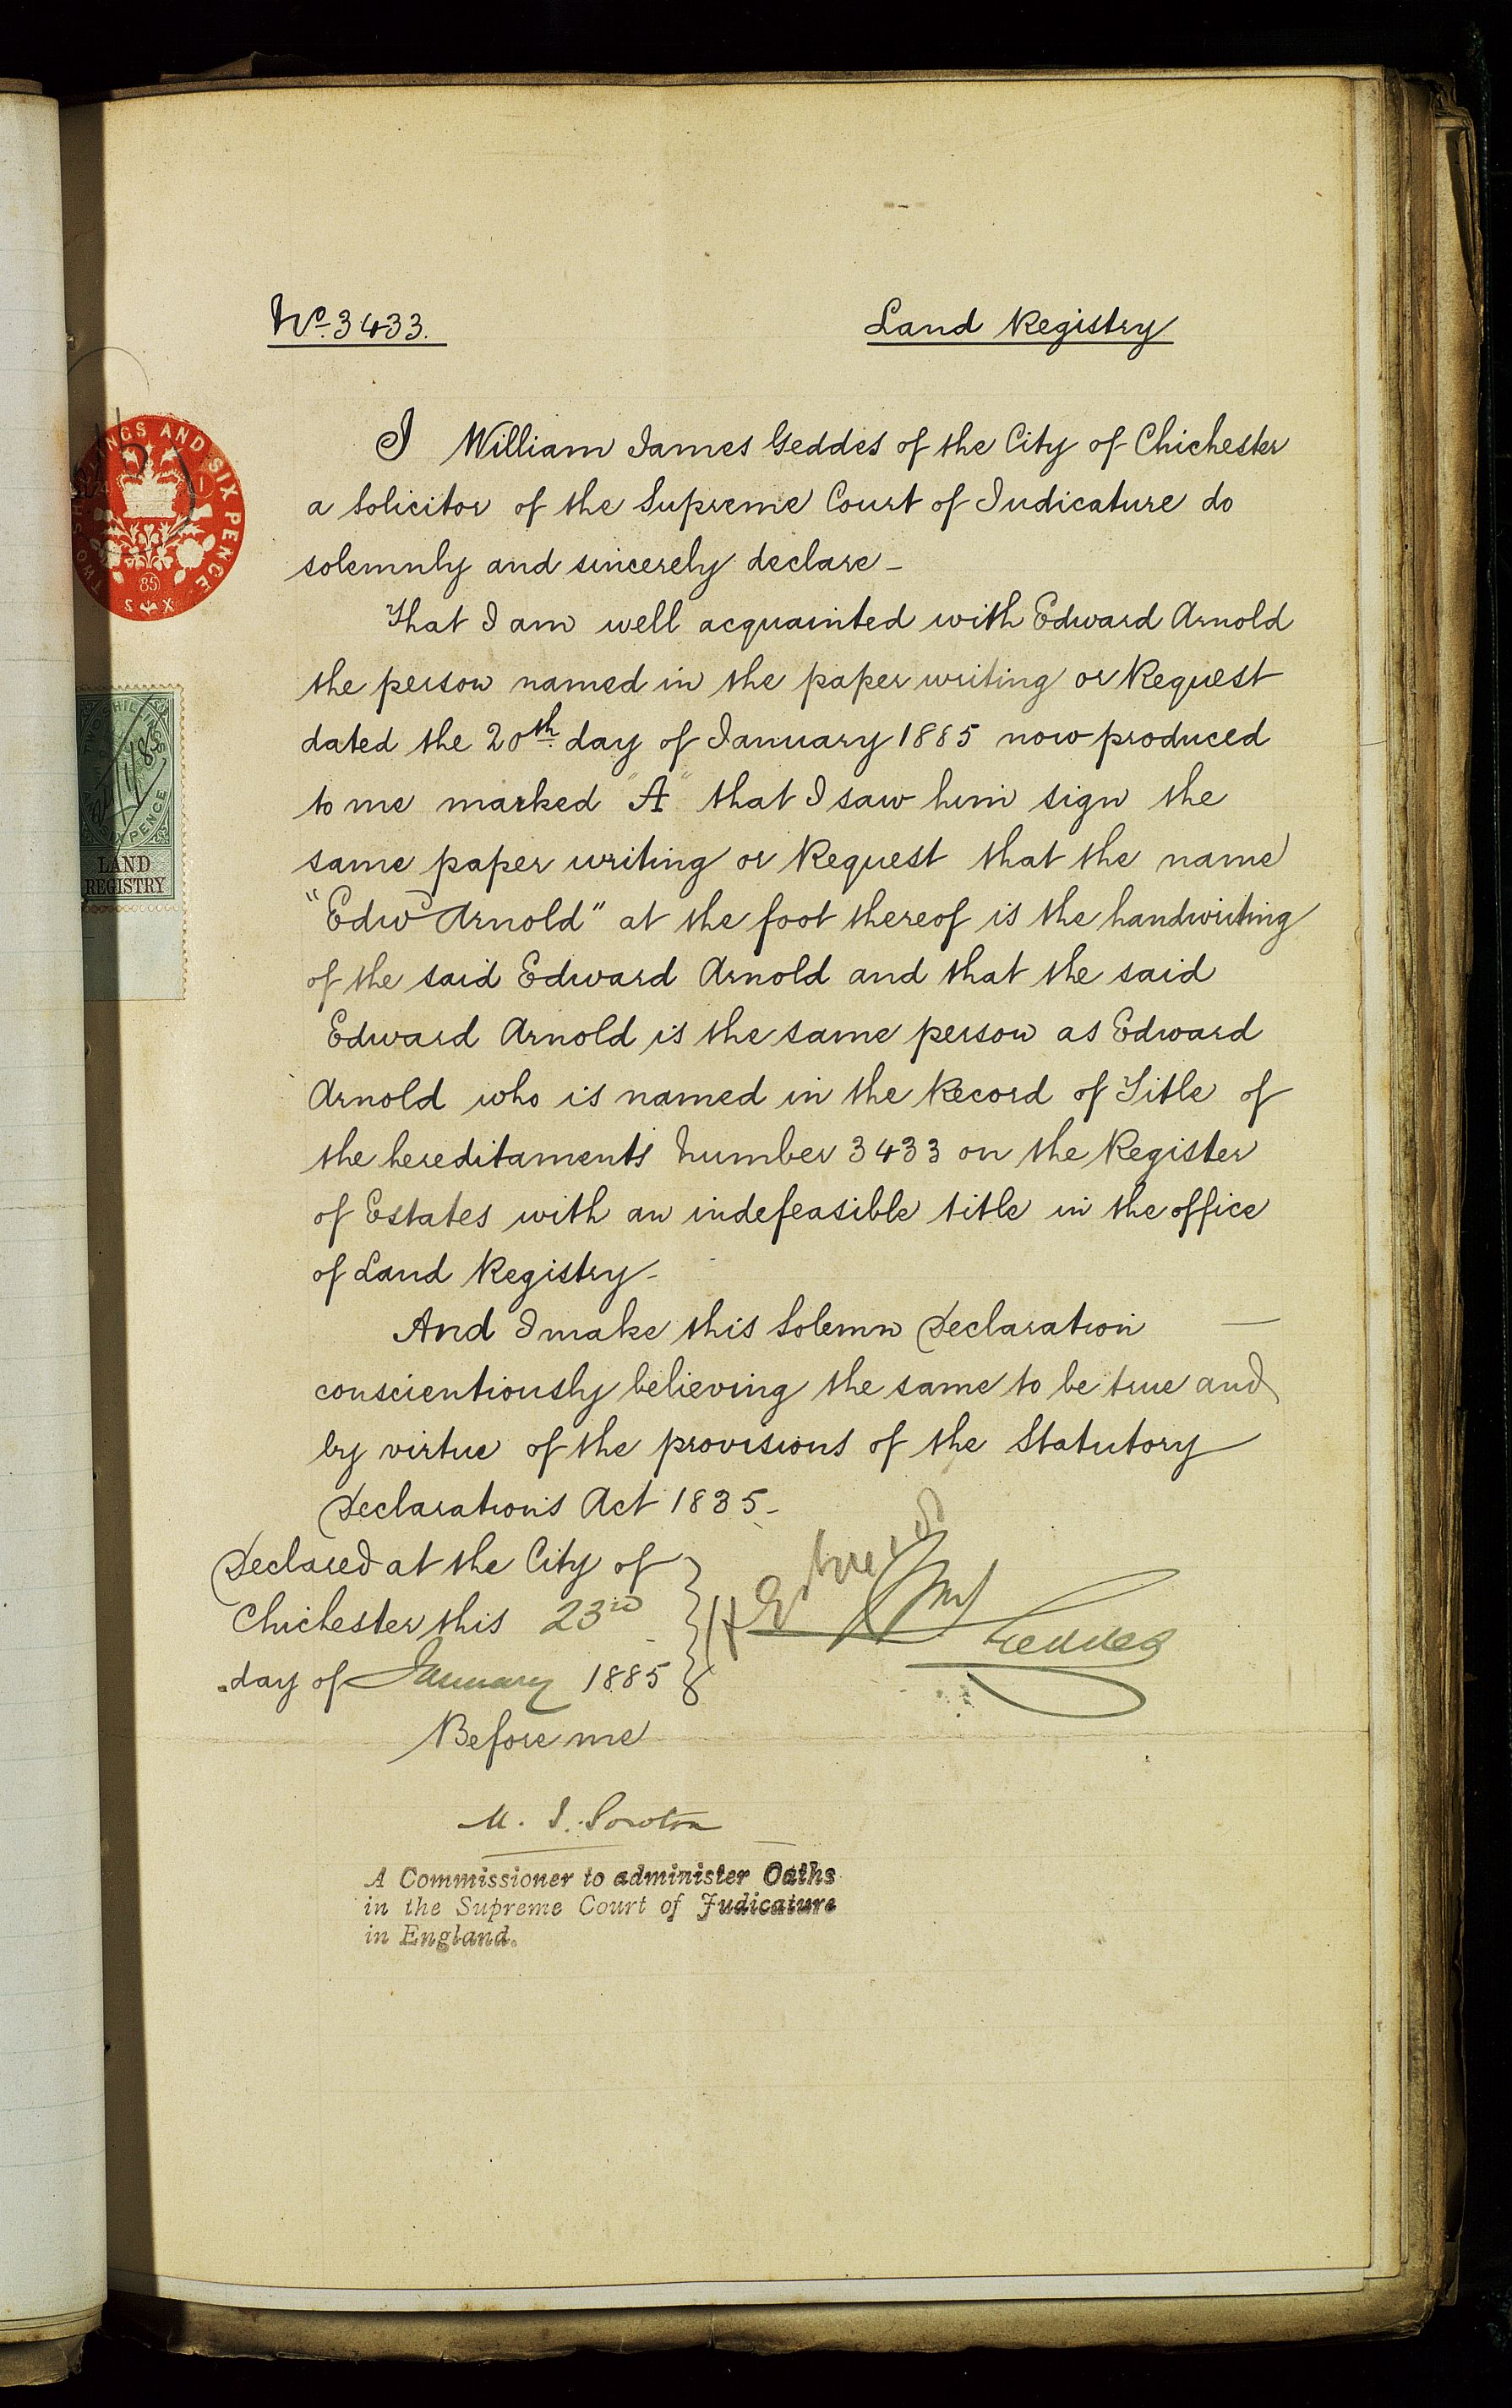 No. 3433.
Land Registry
I William James Geddes of the City of Chichester
a Solicitor of the Supreme Court of Judicature do
solemnly and sincerely declare -
That I am well acquainted with Edward Arnold
the person named in the paper writing or Request
dated the 20th day of January 1885 now produced
to me marked "A" that I saw him sign the
same paper writing or Request that the name
"Edwd Arnold" at the foot thereof is the handwriting
of the said Edward Arnold and that the said
Edward Arnold is the same person as Edward
Arnold who is named in the Record of Title of
the hereditaments Number 3433 on the Register
of Estates with an indefeasible title in the office
of Land Registry -
And I make this Solemn Declaration
conscientiously believing the same to be true and
by virtue of the provisions of the Statutory
Declarations Act 1835 -
Declared at the City of
Chichester this 23rd
day of January 1885
Geddes
Before me
A Commissioner to administer Oaths
in the Supreme Court of Judicature
in England.
TWO SHILLINGS AND SIX PENCE
85
LAND
REGISTRY